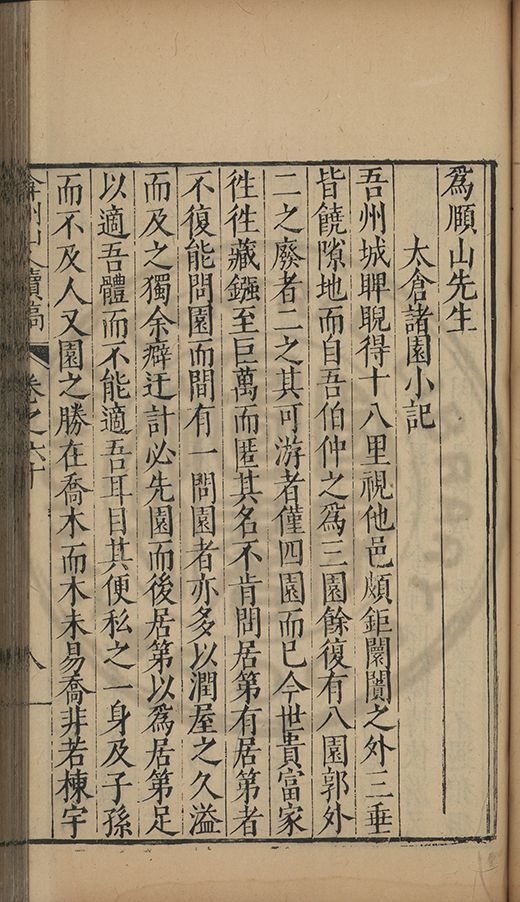 爲頋山先生
太倉諸園小記
吾州城睥睨得十八里視他邑頗鉅闤闠之外三垂
皆饒隙地而自吾伯仲之爲三園餘復有八園郭外
二之廢者二之其可游者僅四園而已今世貴富家
徃徃藏鏹至巨萬而匿其名不肯問居第有居第者
不復能問園而間有一問園者亦多以潤屋之久溢
而及之獨余癖迂計必先園而後居第以爲居第足
以適吾體而不能適吾耳目其便私之一身及子孫
而不及人又園之勝在喬木而木未易喬非若棟宇
弇州山人續稿 卷之六十 八